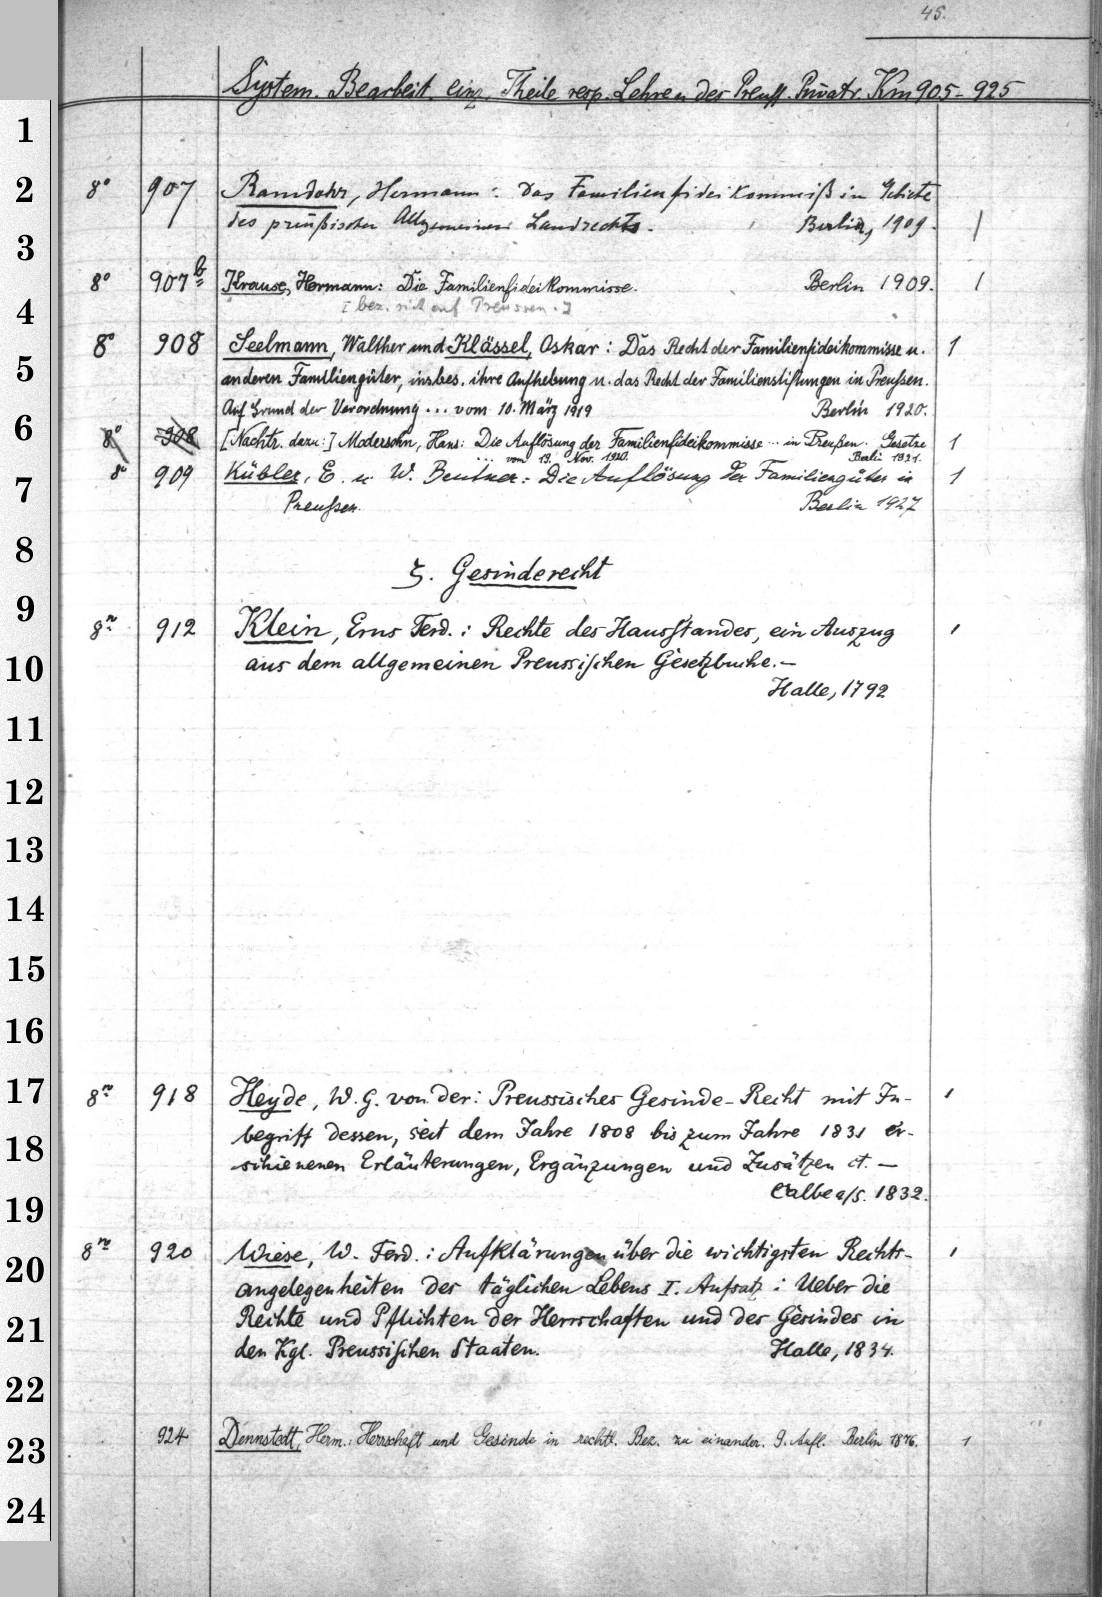 45.
System. Bearbeit. einz. Theile resp. Lehren des Preuss. Privatr. Km 905-925
1
2 8° 907 Ramdohr, Hermann: Das Familienfideikommiß im Gebiete
des preußischen Allgemeinen Landrechts. Berlin, 1909. 1
3
8° 907b Krause, Hermann: Die Familienfideikommisse. Berlin 1909. 1
4 [bez. sich auf Preussen.]
8° 908 Seelmann, Walther und Klässel, Oskar: Das Recht der Familienfideikommisse u. 1
5 anderen Familiengüter, insbes. ihre Aufhebung u. das Recht der Familienstiftungen in Preußen.
Auf Grund der Verordnung ... vom 10. März 1919 Berlin 1920.
6 8° 908 [Nachtr. dazu:] Modersohn, Hans: Die Auflösung der Familienfideikommisse ... in Preußen. Gesetze 1
... vom 19. Nov. 1920. Berlin 1921.
7 8° 909 Kübler, E. u. W. Beutner: Die Auflösung der Familiengüter in 1
Preußen. Berlin 1927
8 ζ. Gesinderecht
9
8° 912 Klein, Erns Ferd.: Rechte des Hausstandes, ein Auszug 1
10 aus dem allgemeinen Preussischen Gesetzbuche.—
Halle, 1792
11
12
13
14
15
16
17 8° 918 Heyde, W. G. von der: Preussisches Gesinde-Recht mit In- 1
begriff dessen, seit dem Jahre 1808 bis zum Jahre 1831 er-
18 schienenen Erläuterungen, Ergänzungen und Zusätzen ct. —
19 Calbe a/S. 1832.
8° 920 Wiese, W. Ferd.: Aufklärungen über die wichtigsten Rechts- 1
20 angelegenheiten des täglichen Lebens I. Aufsatz: Ueber die
21 Rechte und Pflichten der Herrschaften und des Gesindes in
den Kgl. Preussischen Staaten. Halle, 1834.
22
23 924 Dennstedt, Herm.: Herrschaft und Gesinde in rechtl. Bez. zu einander. 9. Aufl. Berlin 1876. 1
24